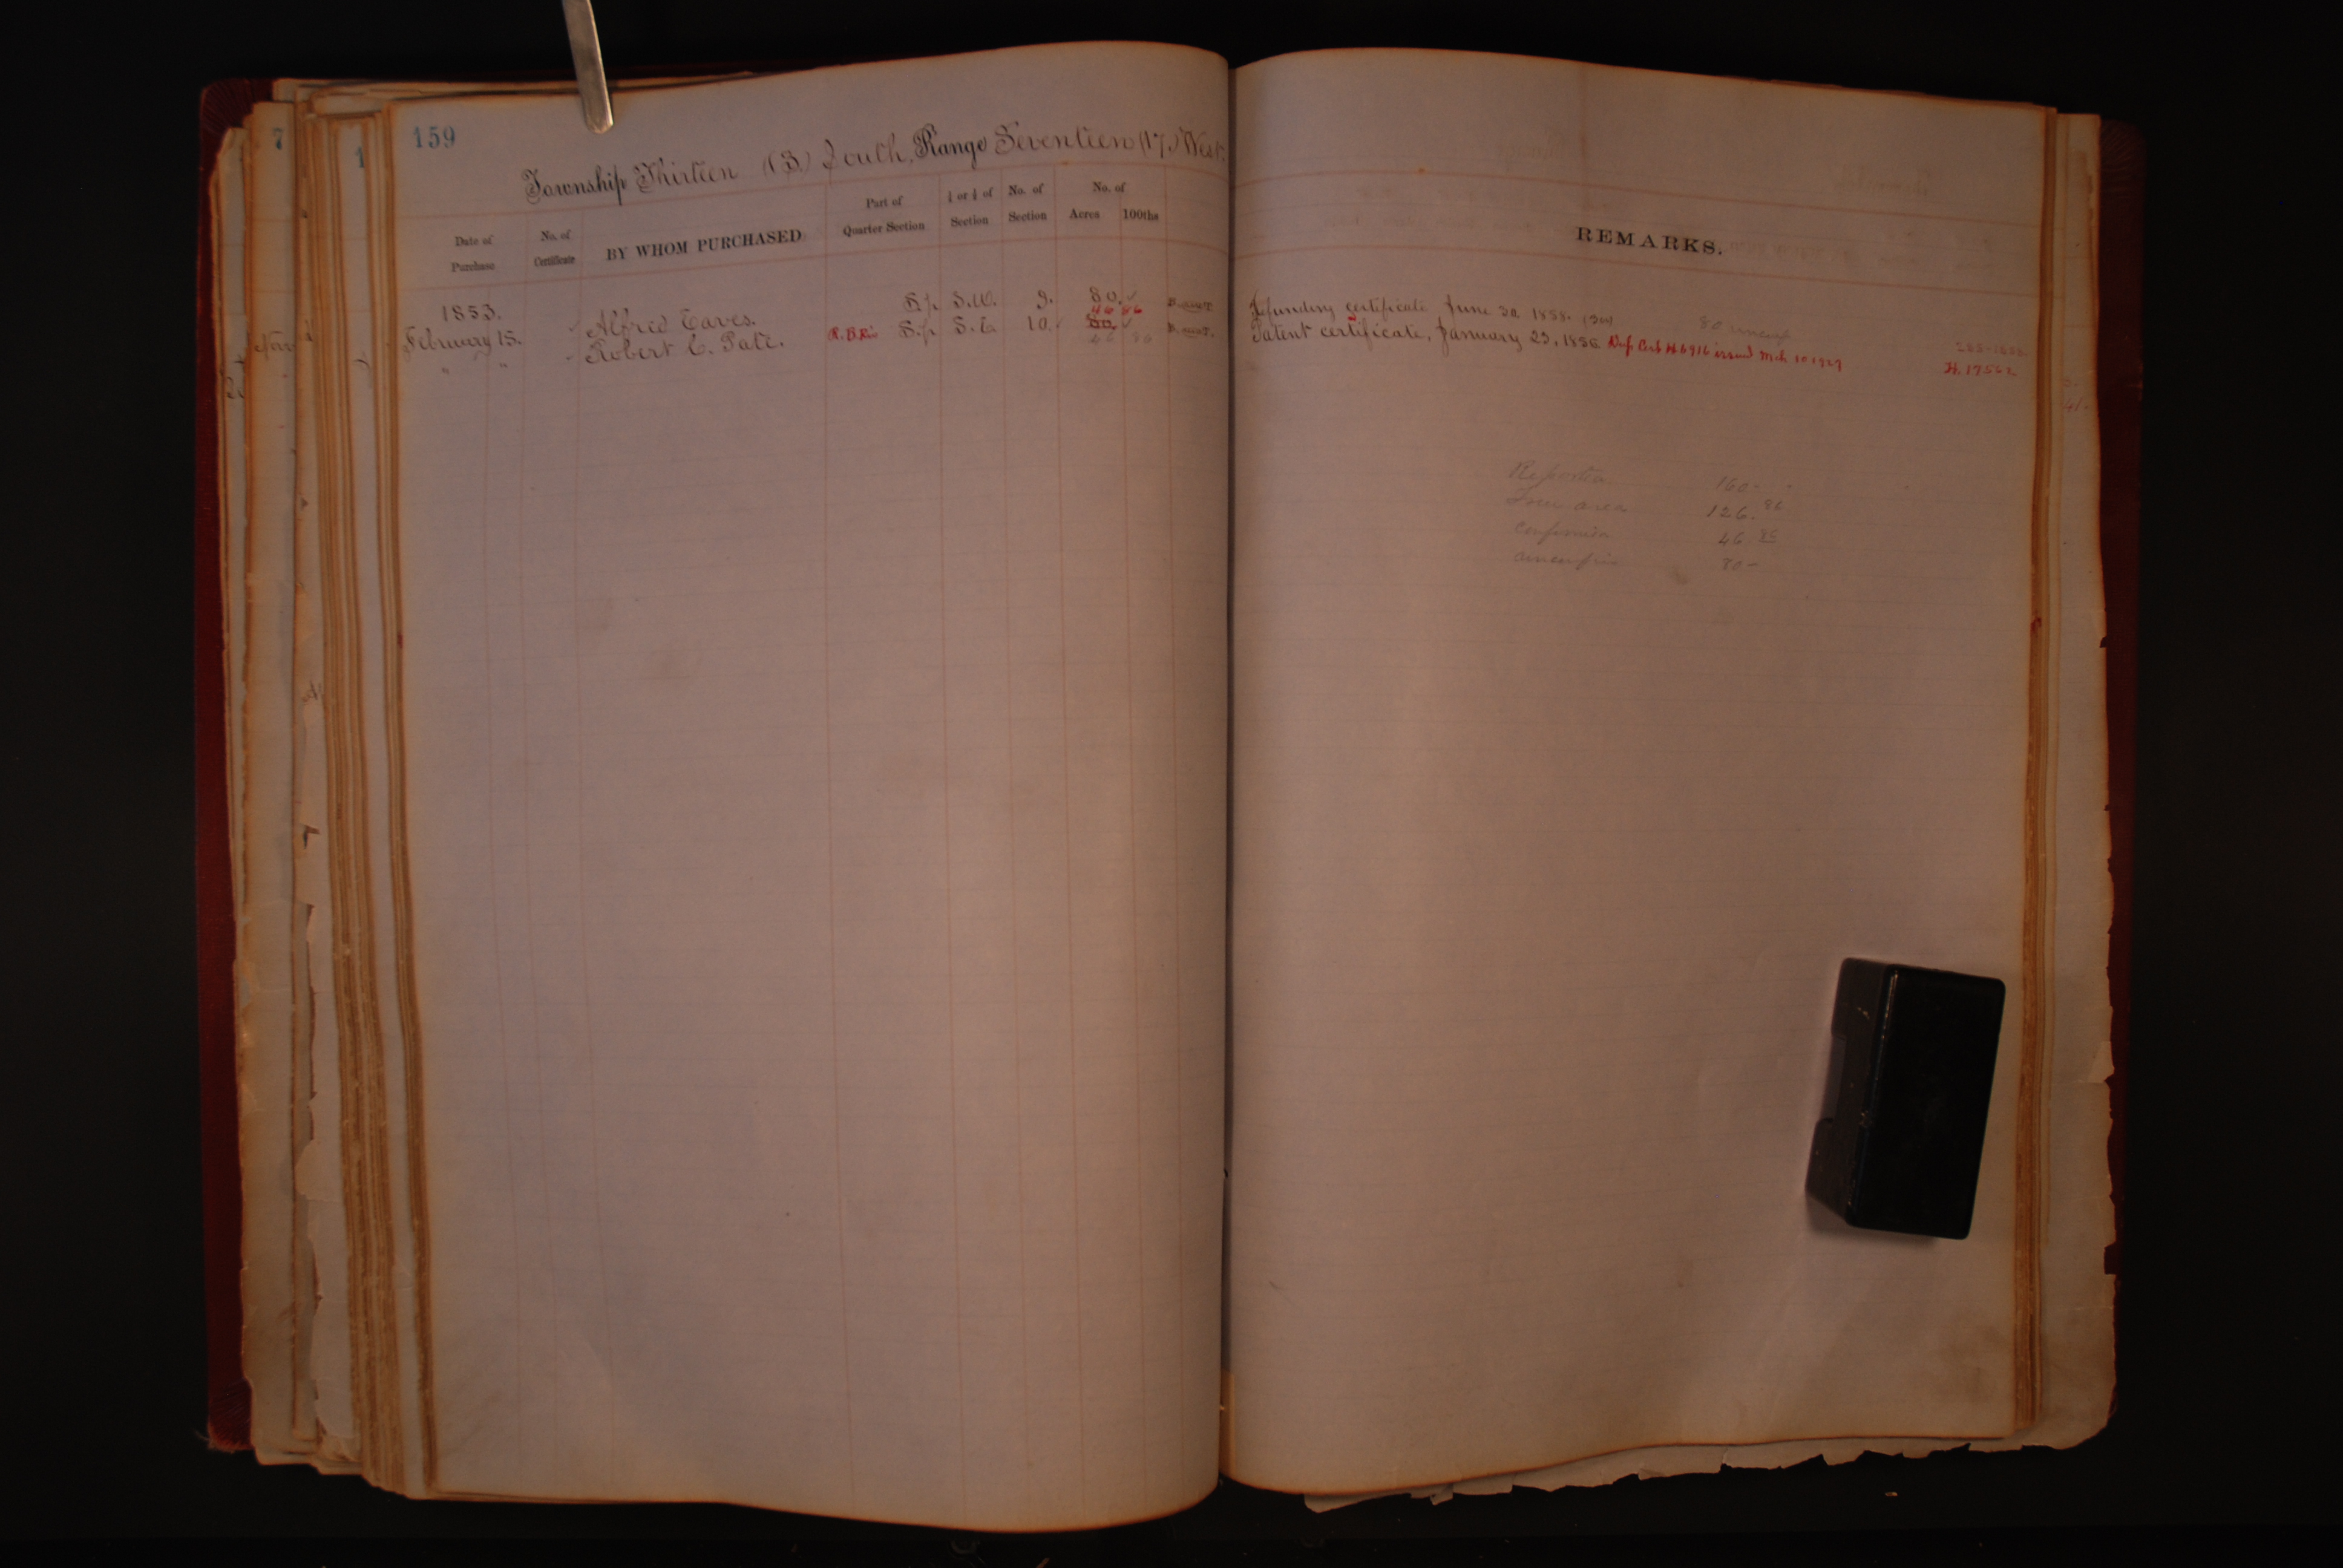 159
Township Thirteen (13) South, Range Seventeen (17) West.
Date of Purchase
No. of Certificate
BY WHOM PURCHASED
Part of Quarter Section
½ or ¼ of Section
No. of Section
No. of Acres 100ths
REMARKS.
1853.
February 15. Alfred Eaves. S.p. S.W. 9. 80. Refunding certificate June 30 1858.
" " Robert C. Pate. S.p. S.E. 10. 80. Patent certificate, January 23, 1856. Dup. Cert H6916 issued Mch 10 1927
46 86
46 86
H. 17562
Reported 160-
True area 126.86
Confirmed 46.86
80-